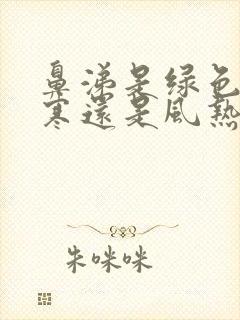 鼻涕是绿色
寒還是風熱
朱咪咪